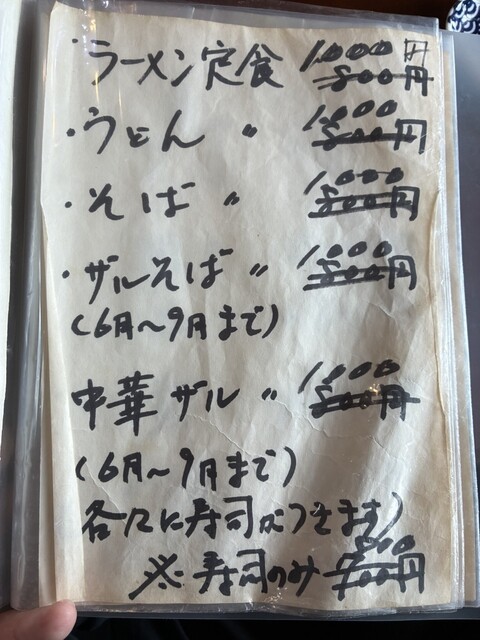 ・ラーメン定食 1,000円 800円
・うどん 〃 1,000 800円
・そば 〃 1,000 800円
・ザルそば 〃 1,000 800円
(6月～9月まで)
中華ザル 〃 1,000 800円
(6月～9月まで)
各々に寿司がつきます)
※寿司のみ 800 700円